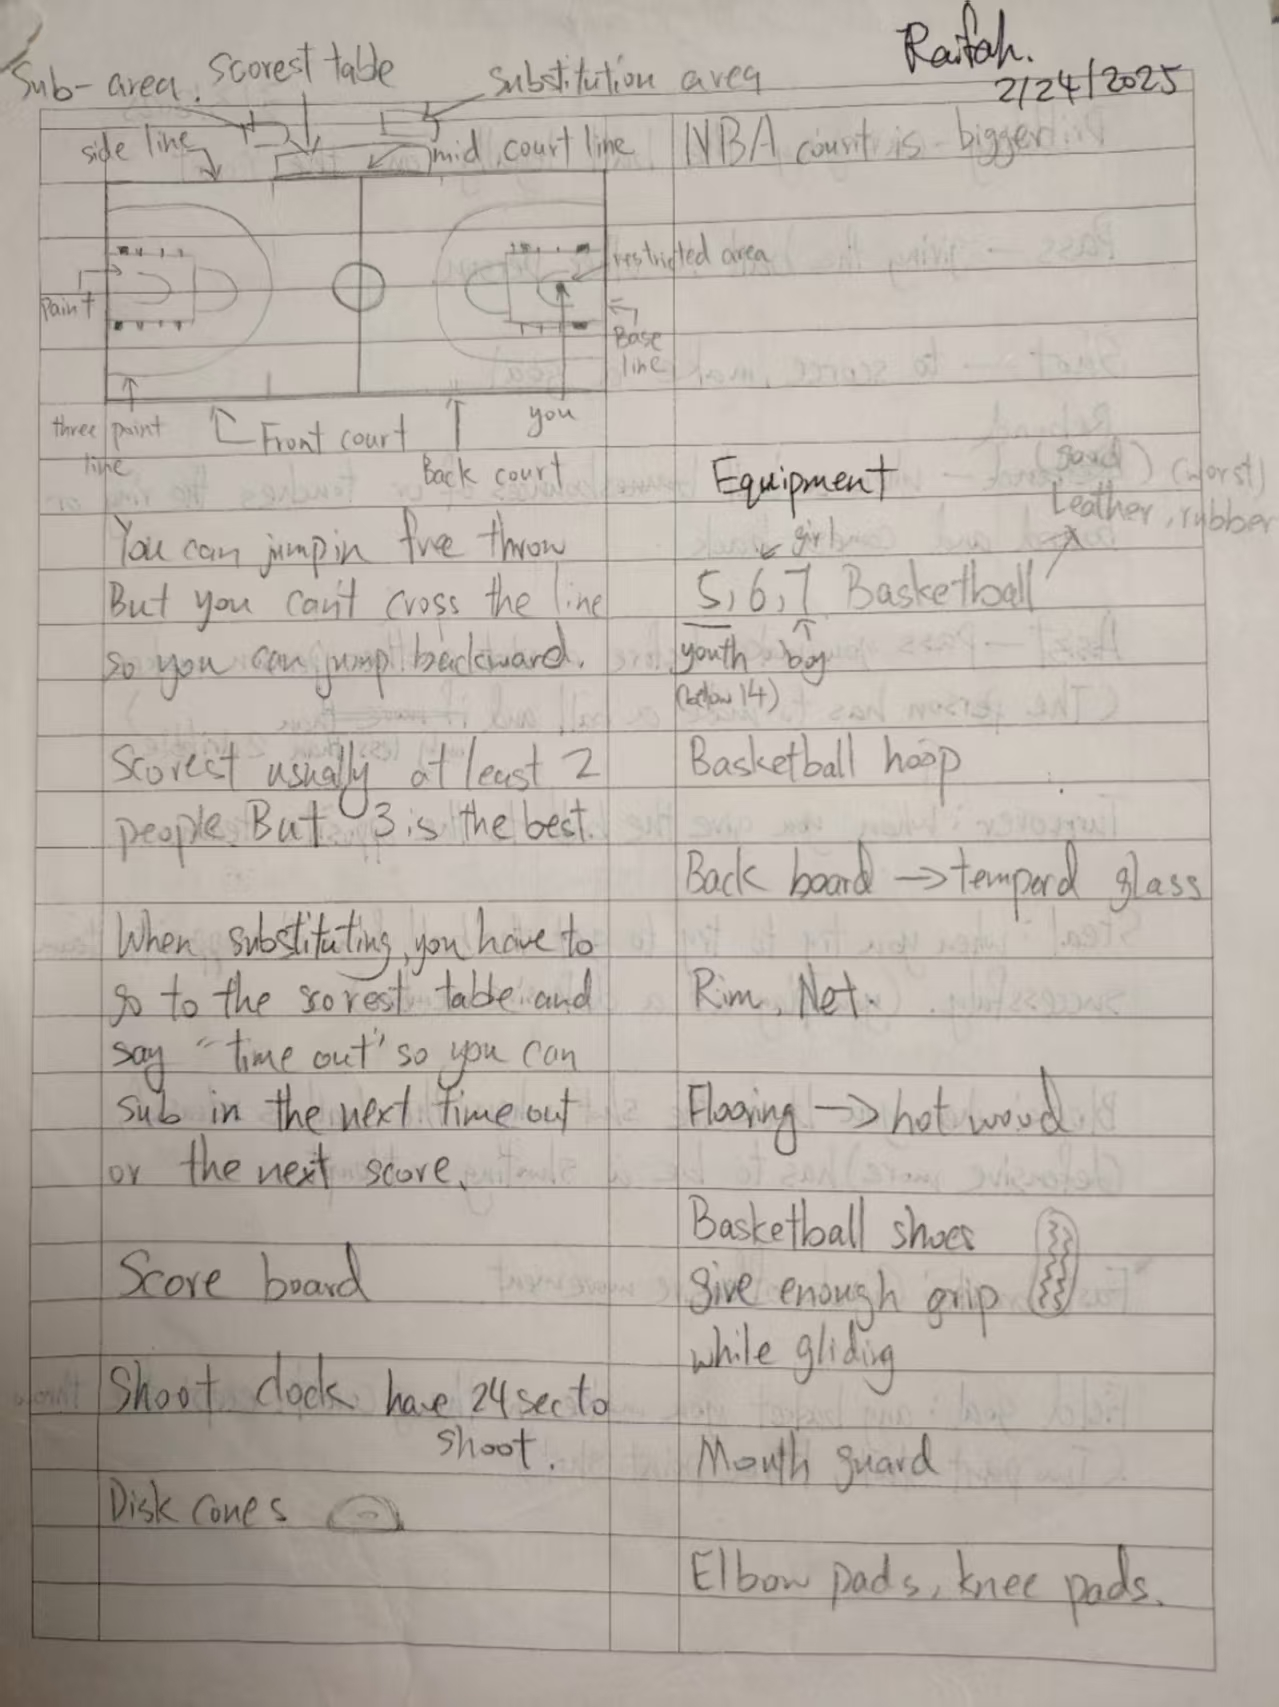 Raifah.
2/24/2025
Sub-area. Scorest table
Substitution area
side line
mid court line
restricted area
Paint
Base
line
three point
line
Front court
Back court
you
You can jump in free throw
But you can't cross the line
so you can jump backward.
Scorest usually at least 2
people. But 3 is the best.
When substituting, you have to
go to the scorest table and
say "time out" so you can
sub in the next time out
or the next score.
Score board
Shoot clock have 24 sec to
shoot.
Disk cones
NBA court is bigger
Equipment
(good) (worst)
Leather, rubber
girl
5, 6, 7 Basketball
youth boy
(below 14)
Basketball hoop
Back board → temperd glass
Rim, Net.
Flooring → hot wood
Basketball shoes
give enough grip
while gliding
Mouth guard
Elbow pads, knee pads.